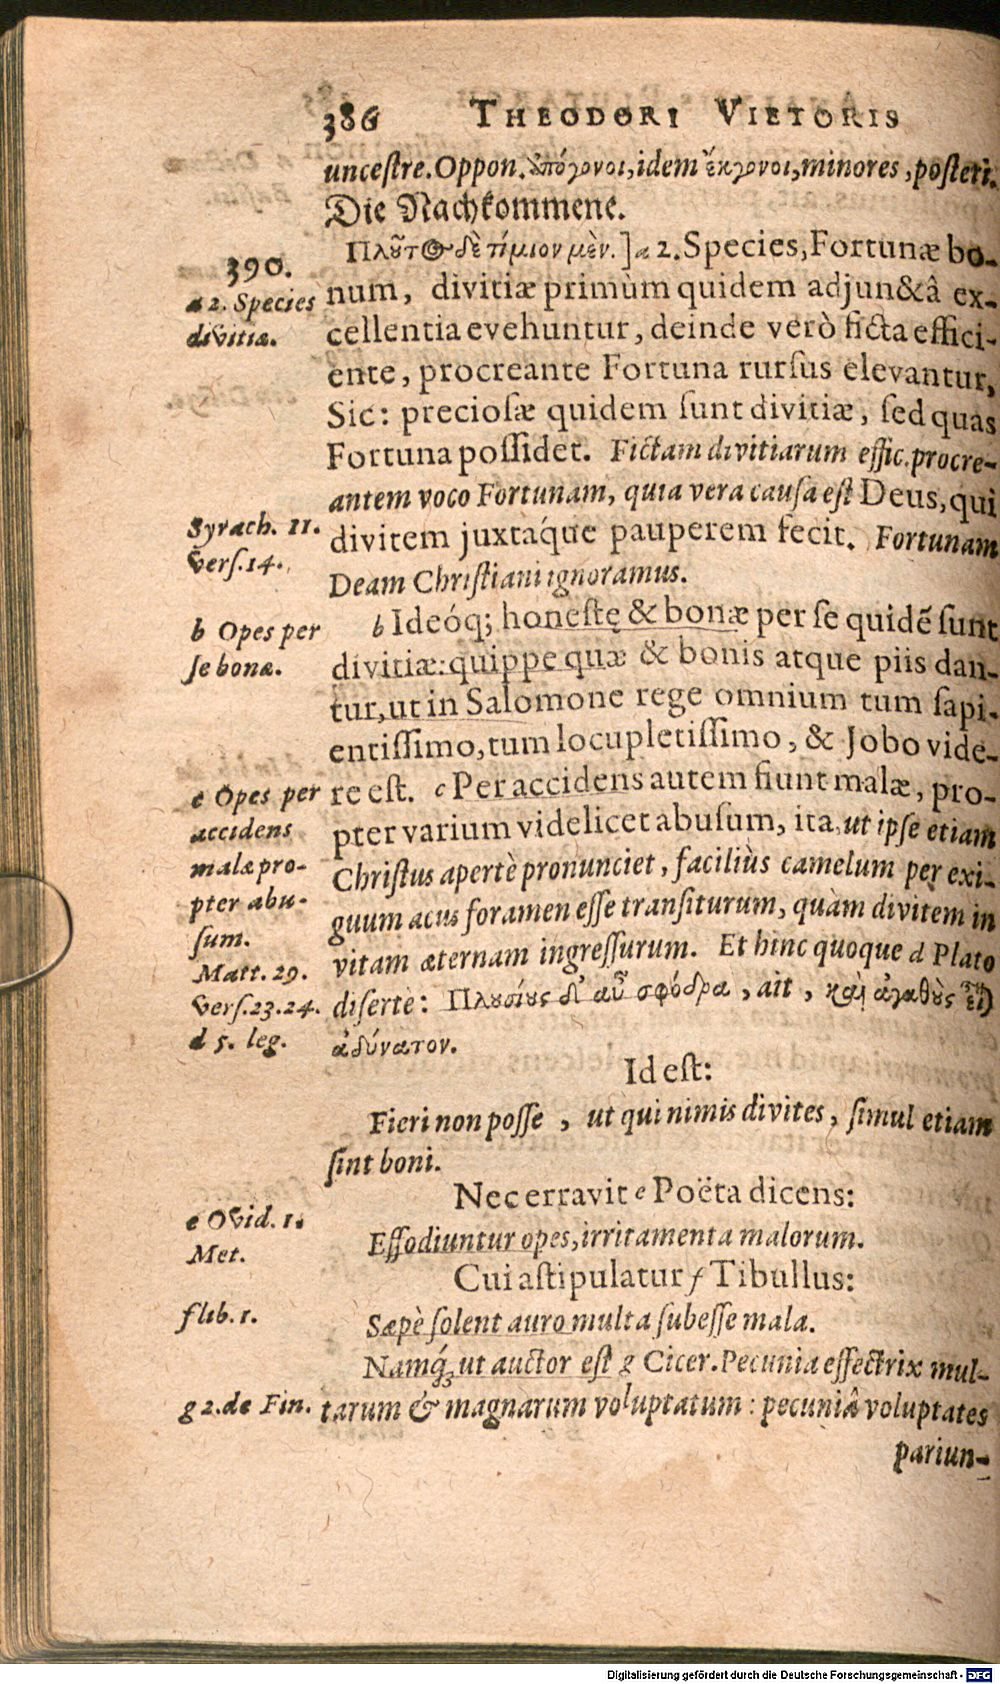 386 THEODORI VIETORIS
uncestre. Oppon. ἀπόγονοι, idem ἔκγονοι, minores, posteri.
Die Nachkommene.
Πλοῦτος δὲ τίμιον μὲν.] a 2. Species, Fortunæ bo-
390.
num, divitiæ primùm quidem adjunctâ ex-
a 2. Species
divitiæ.
cellentia evehuntur, deinde verò ficta effici-
ente, procreante Fortuna rursus elevantur,
Sic: preciosæ quidem sunt divitiæ, sed quas
Fortuna possidet. Fictam divitiarum effic. procre-
antem voco Fortunam, quia vera causa est Deus, qui
Syrach. 11.
Vers. 14.
divitem juxtaq́ue pauperem fecit. Fortunam
Deam Christiani ignoramus.
b Ideóq; honestę & bonæ per se quidẽ sunt
b Opes per
se bonæ.
divitiæ: quippe quæ & bonis atque piis dan-
tur, ut in Salomone rege omnium tum sapi-
entissimo, tum locupletissimo, & Jobo vide-
re est. c Per accidens autem fiunt malæ, pro-
c Opes per
accidens
malæ pro-
pter abu-
sum.
pter varium videlicet abusum, ita, ut ipse etiam
Christus apertè pronunciet, faciliùs camelum per exi-
guum acus foramen esse transiturum, quàm divitem in
vitam æternam ingressurum. Et hinc quoque d Plato
Matt. 29.
Vers. 23. 24.
d 5. leg.
disertè: Πλουσίους δ᾽ αὖ σφόδρα, ait, καὶ ἀγαθοὺς εἶναι
ἀδύνατον.
Id est:
Fieri non posse, ut qui nimis divites, simul etiam
sint boni.
Nec erravit e Poëta dicens:
e Ovid. 1.
Met.
Effodiuntur opes, irritamenta malorum.
Cui astipulatur f Tibullus:
f lib. 1.
Sæpè solent auro multa subesse mala.
Namq́; ut auctor est g Cicer. Pecunia effectrix mul-
g 2. de Fin.
tarum & magnarum voluptatum: pecuniâ voluptates
pariun-
Digitalisierung gefördert durch die Deutsche Forschungsgemeinschaft - DFG